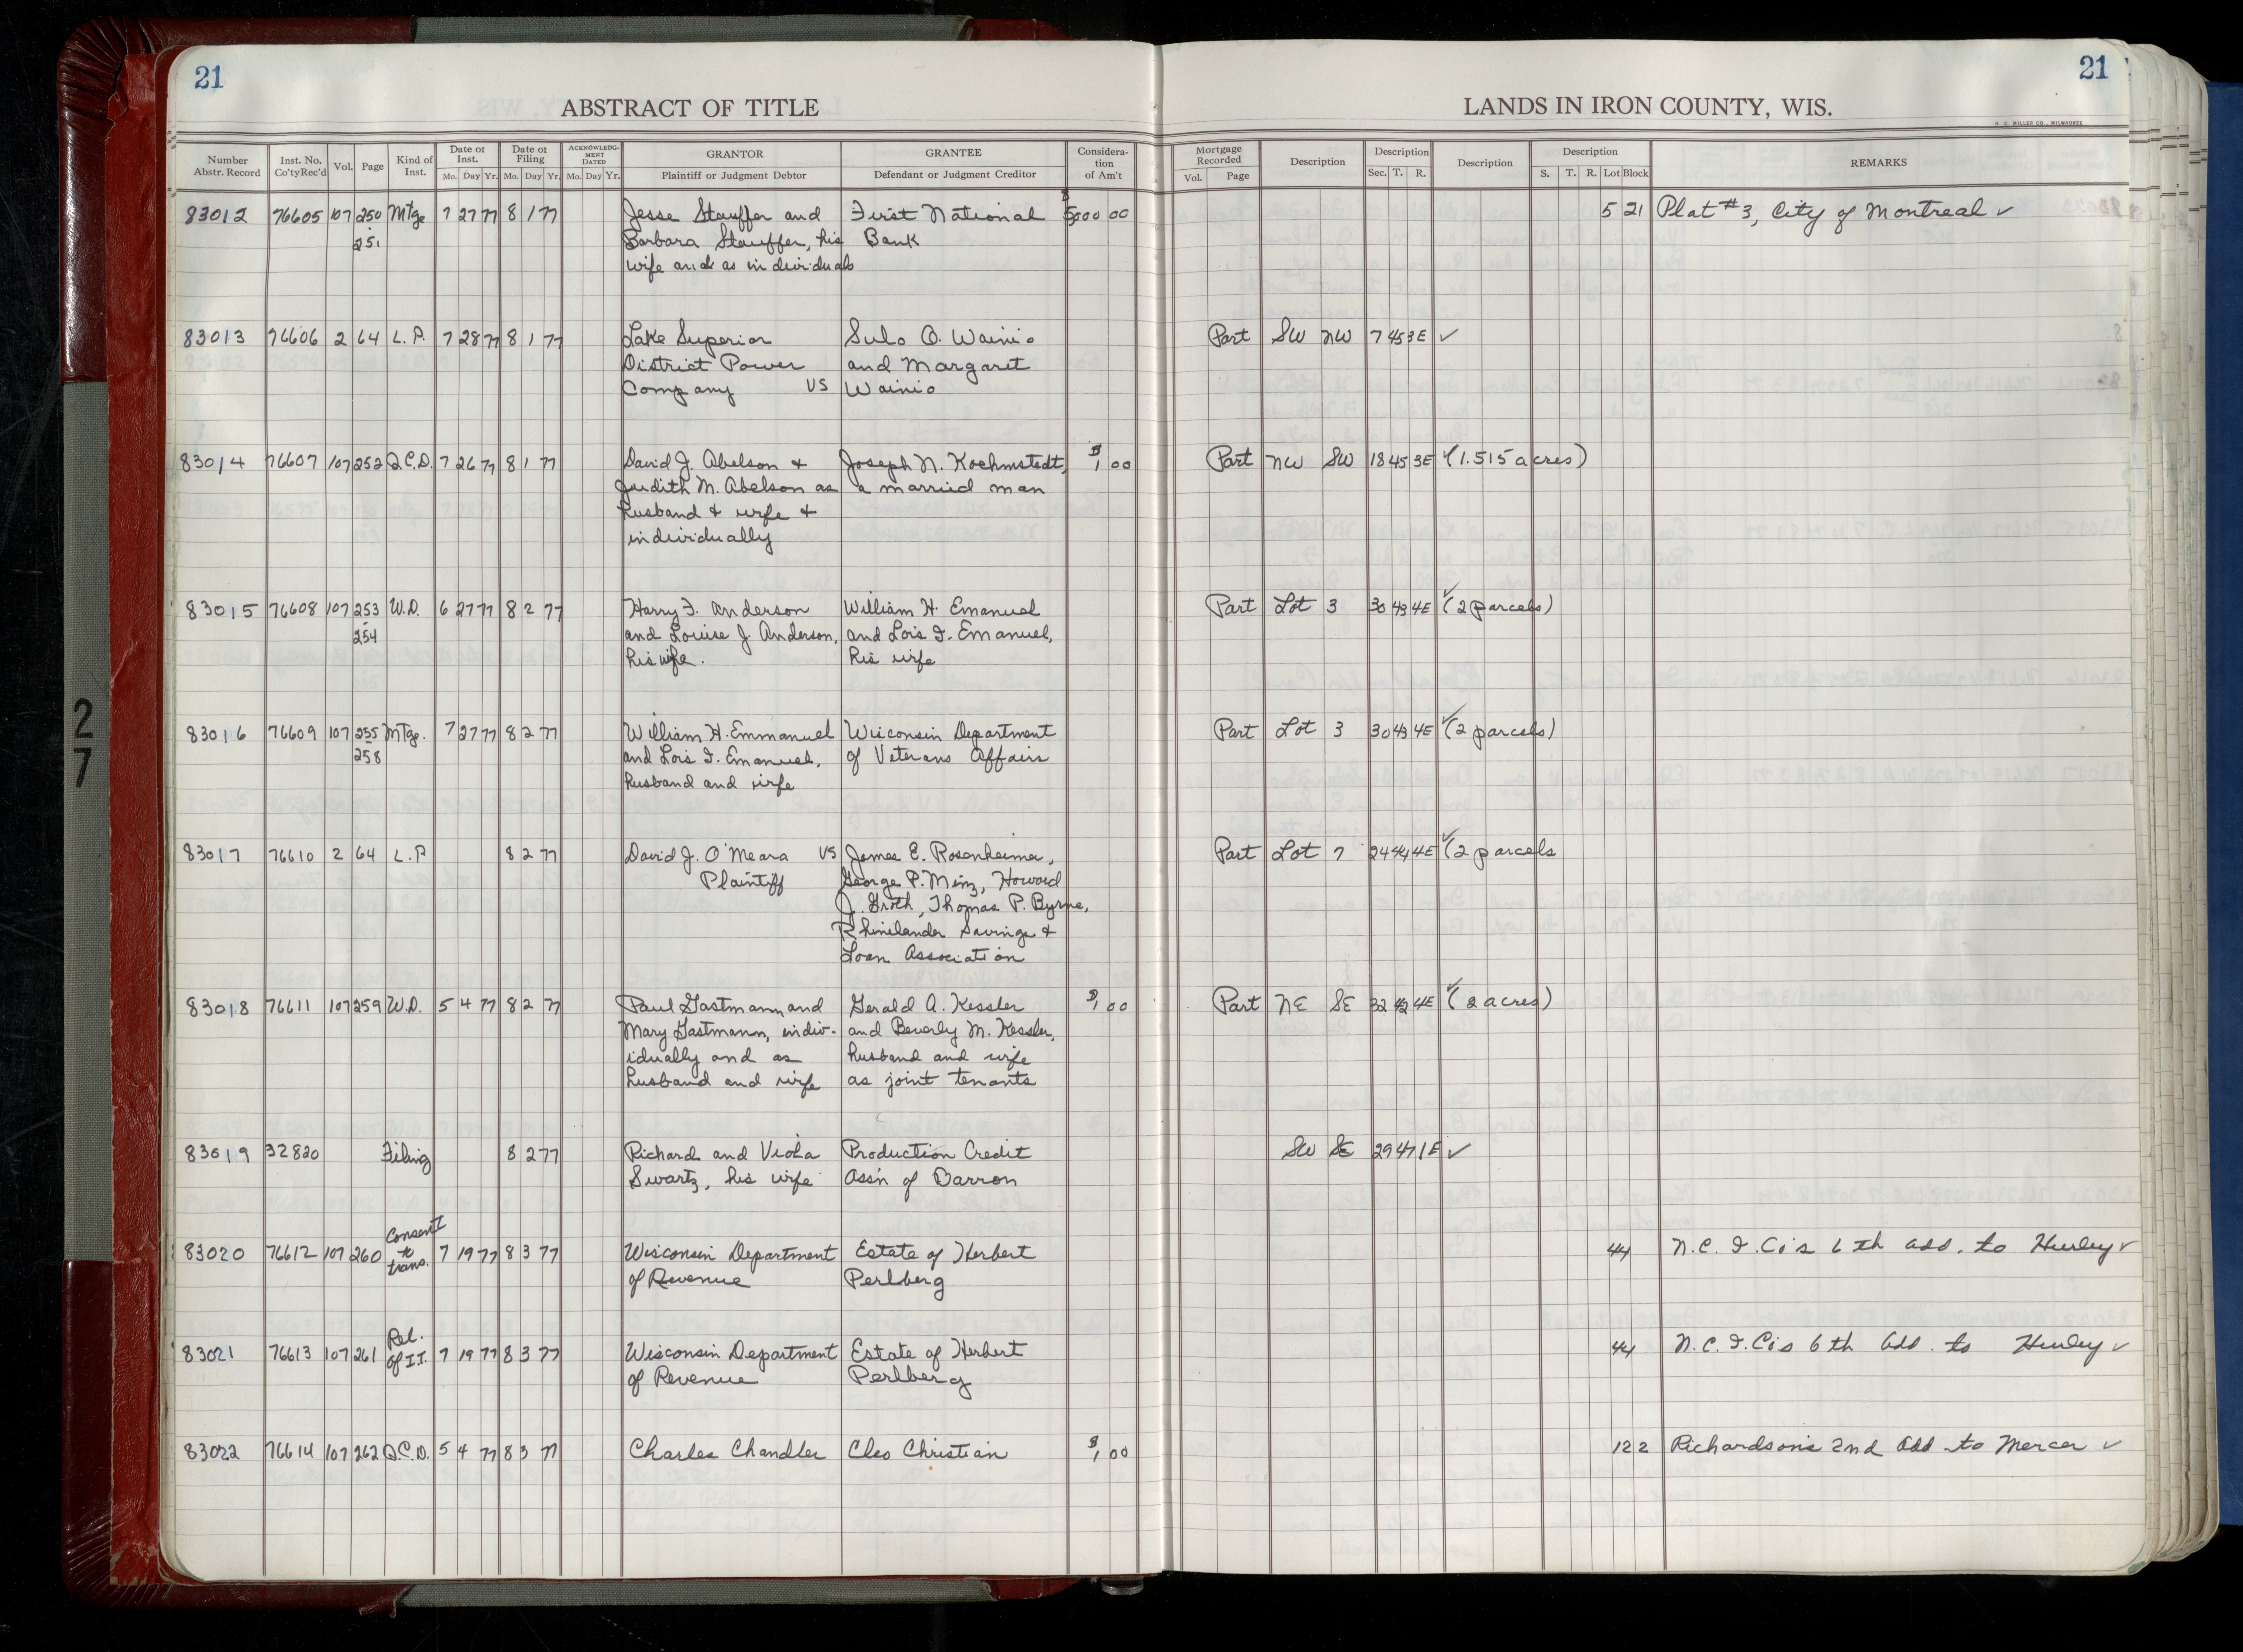 21
21
ABSTRACT OF TITLE
LANDS IN IRON COUNTY, WIS.
H. C. MILLER CO., MILWAUKEE
Number Abstr. Record Inst. No. Co'ty Rec'd Vol. Page Kind of Inst. Date of Inst. Mo. Day Yr. Date of Filing Mo. Day Yr. ACKNOWLEDGMENT DATED Mo. Day Yr. GRANTOR Plaintiff or Judgment Debtor GRANTEE Defendant or Judgment Creditor Consideration of Am't Mortgage Recorded Vol. Page Description Description Sec. T. R. Description Description S. T. R. Lot Block REMARKS
83012 76605 107 250 Mtge 7 27 77 8 1 77 Jesse Stauffer and First National $5000 00 5 21 Plat #3, City of Montreal ✓
251 Barbara Stauffer, his Bank
wife and as individuals
83013 76606 2 64 L.P. 7 28 77 8 1 77 Lake Superior Sulo O. Wainio Part SW NW 7 45 3E ✓
District Power and Margaret
Company VS Wainio
83014 76607 107 252 Q.C.D. 7 26 77 8 1 77 David J. Abelson + Joseph N. Kochmstedt, $1 00 Part NW SW 18 45 3E ✓ (1.515 acres)
Judith M. Abelson as a married man
husband + wife +
individually
83015 76608 107 253 W.D. 6 27 77 8 2 77 Harry F. Anderson William H. Emanuel Part Lot 3 30 43 4E ✓ (2 parcels)
254 and Louise J. Anderson, and Lois I. Emanuel,
his wife. his wife
83016 76609 107 255 Mtge. 7 27 77 8 2 77 William H. Emmanuel Wisconsin Department Part Lot 3 30 43 4E ✓ (2 parcels)
258 and Lois I. Emanuel, of Veterans Affairs
husband and wife
83017 76610 2 64 L.P 8 2 77 David J. O'Meara VS James E. Rosenheimer, Part Lot 7 24 44 4E ✓ (2 parcels
Plaintiff George P. Minz, Howard
J. Groth, Thomas P. Byrne,
Rhinelander Savings +
Loan Association
83018 76611 107 259 W.D. 5 4 77 8 2 77 Paul Gastmann and Gerald A. Kessler $1 00 Part NE SE 32 42 4E ✓ (2 acres)
Mary Gastmann, indiv- and Beverly M. Kessler,
idually and as husband and wife
husband and wife as joint tenants
83019 32820 Filing 8 2 77 Richard and Viola Production Credit SW SE 29 47 1E ✓
Swartz, his wife Ass'n of Barron
83020 76612 107 260 Consent to trans. 7 19 77 8 3 77 Wisconsin Department Estate of Herbert 44 N.C.I.Co's 6th Add. to Hurley ✓
of Revenue Perlberg
83021 76613 107 261 Rel. of I.T. 7 19 77 8 3 77 Wisconsin Department Estate of Herbert 44 N.C.I.Co's 6th Add. to Hurley ✓
of Revenue Perlberg
83022 76614 107 262 Q.C.D. 5 4 77 8 3 77 Charles Chandler Cleo Christian $1 00 12 2 Richardson's 2nd Add to Mercer ✓
27